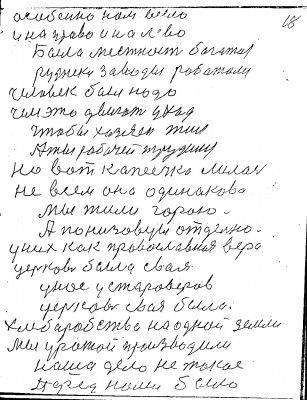 особенно нам весло
18
и на право и на лево
Была местност богатая
рудники заводы работали
человек был надо
чем это двигат
чтобы хазяен жил
А ты рабочей трудис
Но вот капеечка милая
не всем она одинакова
мы жили гарою.
А понизовуи отделно.
у них как православная вера
церковь былла свая
у нас у староверов
церковь свая была.
хлебаробство на одной земли
мы уражай производили
наша дело не такое
перед нами было